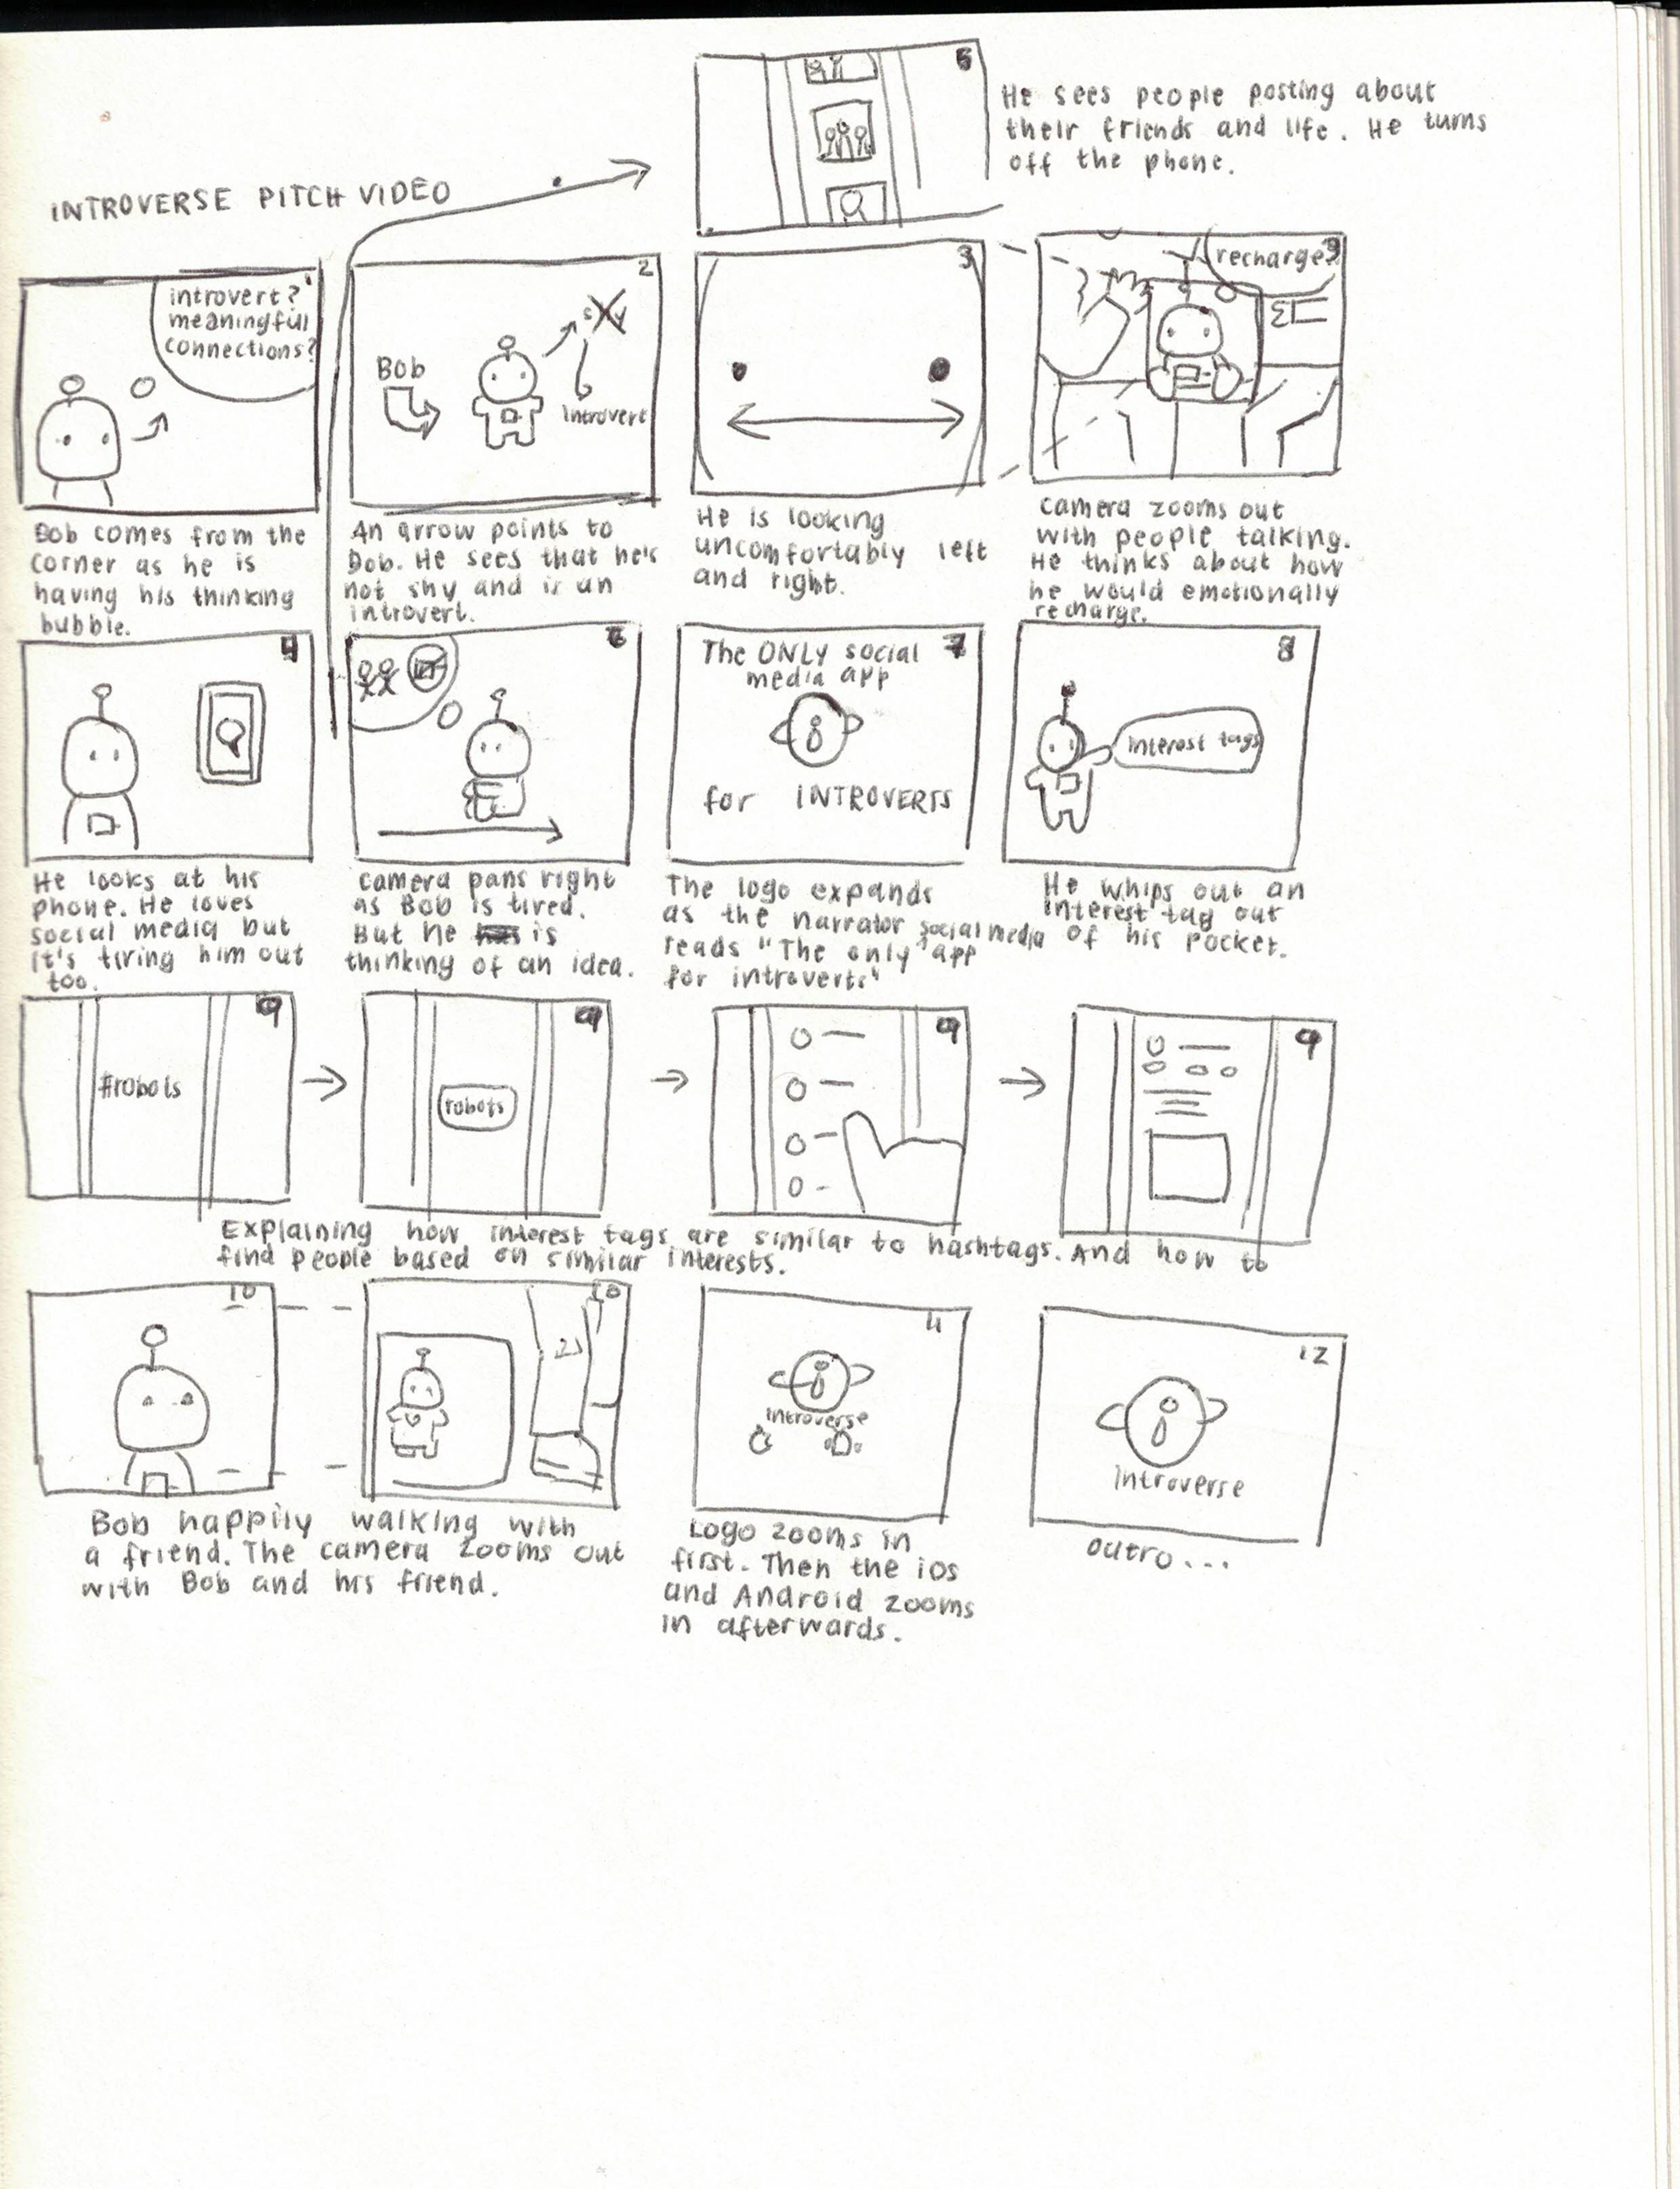 5
He sees people posting about
their friends and life. He turns
off the phone.
INTROVERSE PITCH VIDEO
1
introvert?
meaningful
connections?
Bob comes from the
corner as he is
having his thinking
bubble.
2
Bob
shy
introvert
An arrow points to
Bob. He sees that he's
not shy and is an
introvert.
3
He is looking
uncomfortably left
and right.
3
recharge?
camera zooms out
with people talking.
He thinks about how
he would emotionally
recharge.
4
He looks at his
phone. He loves
social media but
it's tiring him out
too.
6
camera pans right
as Bob is tired.
But he is
thinking of an idea.
7
The ONLY social
media app
for INTROVERTS
The logo expands
as the narrator
reads "The only social media app
for introverts"
8
interest tags
He whips out an
interest tag out
of his pocket.
9
#robots
9
robots
9
9
Explaining how interest tags are similar to hashtags. And how to
find people based on similar interests.
10
10
Bob happily walking with
a friend. The camera zooms out
with Bob and his friend.
11
introverse
Logo zooms in
first. Then the ios
and Android zooms
in afterwards.
12
introverse
outro...